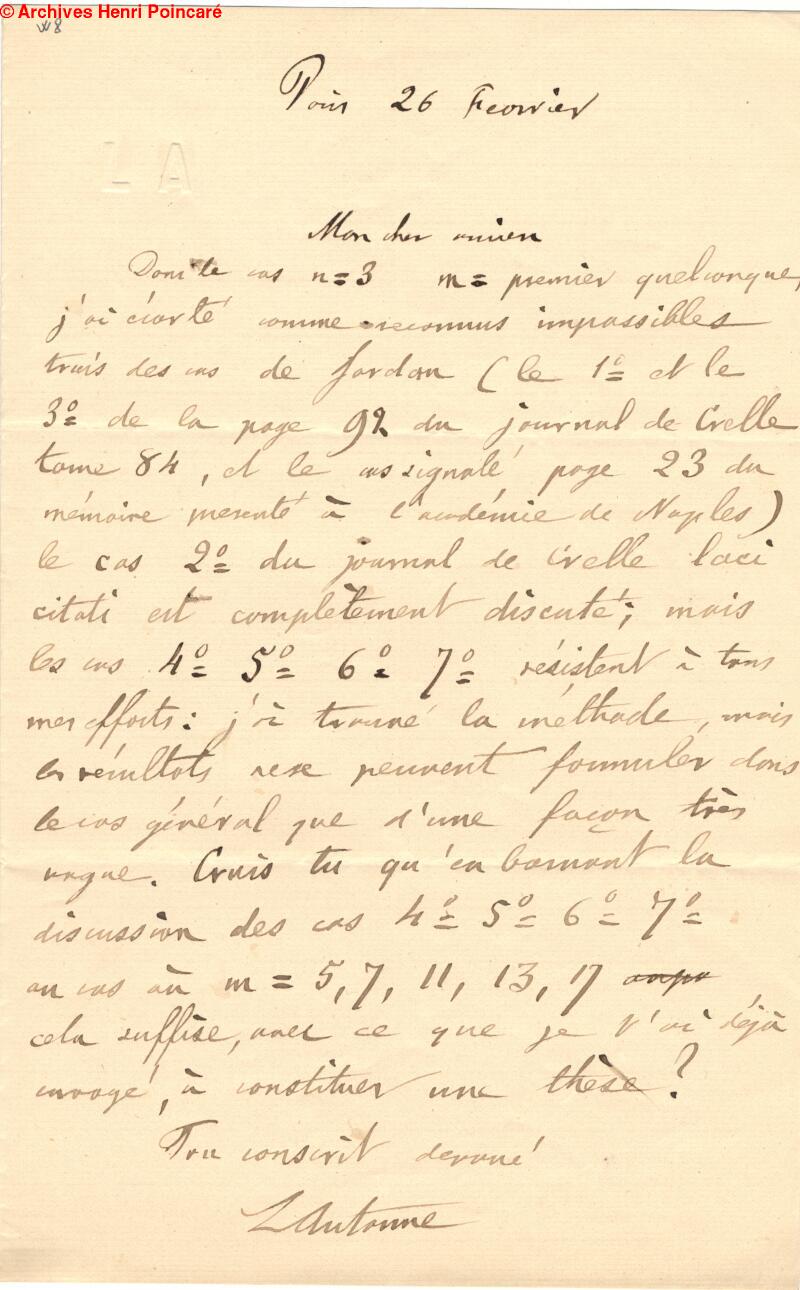 © Archives Henri Poincaré
Paris 26 Fevrier
L A
Mon cher ancien
Dans le cas n=3 m= premier quelconque,
j'ai écarté comme reconnus impossibles
trois des cas de Jordan (le 1º et le
3º de la page 92 du journal de Crelle
tome 84, et le cas signalé, page 23 du
mémoire presenté à l'académie de Naples)
le cas 2º du journal de Crelle loci
citati est complètement discuté; mais
les cas 4º 5º 6º 7º résistent à tous
mes efforts: j'ai trouvé la méthode, mais
les résultats ne se peuvent formuler dans
le cas général que d'une façon très
vague. Crois tu qu'en bornant la
discussion des cas 4º 5º 6º 7º
au cas où m = 5, 7, 11, 13, 17
cela suffise, avec ce que je t'ai déjà
envoyé, à constituer une thèse?
Ton conscrit devoué
LAutonne